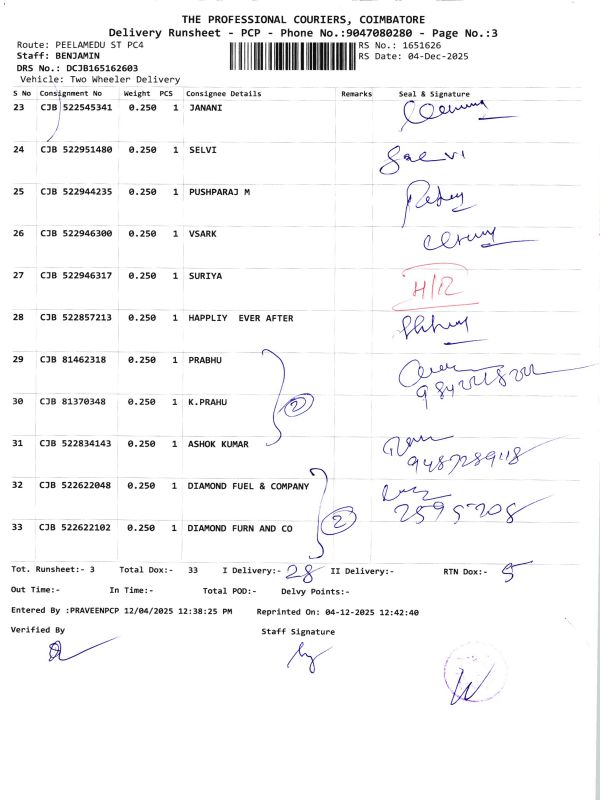 THE PROFESSIONAL COURIERS, COIMBATORE
Delivery Runsheet - PCP - Phone No.:9047080280 - Page No.:3
Route: PEELAMEDU ST PC4 RS No.: 1651626
Staff: BENJAMIN RS Date: 04-Dec-2025
DRS No.: DCJB165162603
Vehicle: Two Wheeler Delivery
S No Consignment No Weight PCS Consignee Details Remarks Seal & Signature
23 CJB 522545341 0.250 1 JANANI
24 CJB 522951480 0.250 1 SELVI Selvi
25 CJB 522944235 0.250 1 PUSHPARAJ M
26 CJB 522946300 0.250 1 VSARK
27 CJB 522946317 0.250 1 SURIYA H/R
28 CJB 522857213 0.250 1 HAPPLIY EVER AFTER
29 CJB 81462318 0.250 1 PRABHU
30 CJB 81370348 0.250 1 K.PRAHU 2
31 CJB 522834143 0.250 1 ASHOK KUMAR
32 CJB 522622048 0.250 1 DIAMOND FUEL & COMPANY
2 2595708
33 CJB 522622102 0.250 1 DIAMOND FURN AND CO
Tot. Runsheet:- 3 Total Dox:- 33 I Delivery:- 28 II Delivery:- RTN Dox:- 5
Out Time:- In Time:- Total POD:- Delvy Points:-
Entered By :PRAVEENPCP 12/04/2025 12:38:25 PM Reprinted On: 04-12-2025 12:42:40
Verified By Staff Signature